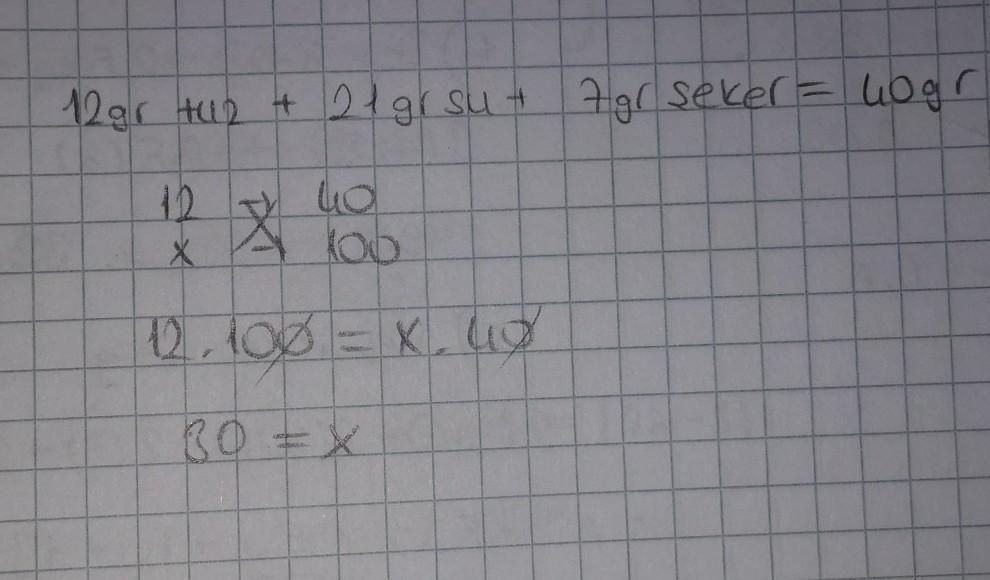 12gr tuz + 21gr su + 7gr seker = 40gr
12 40
x 100
12.100 = x.40
30 = x